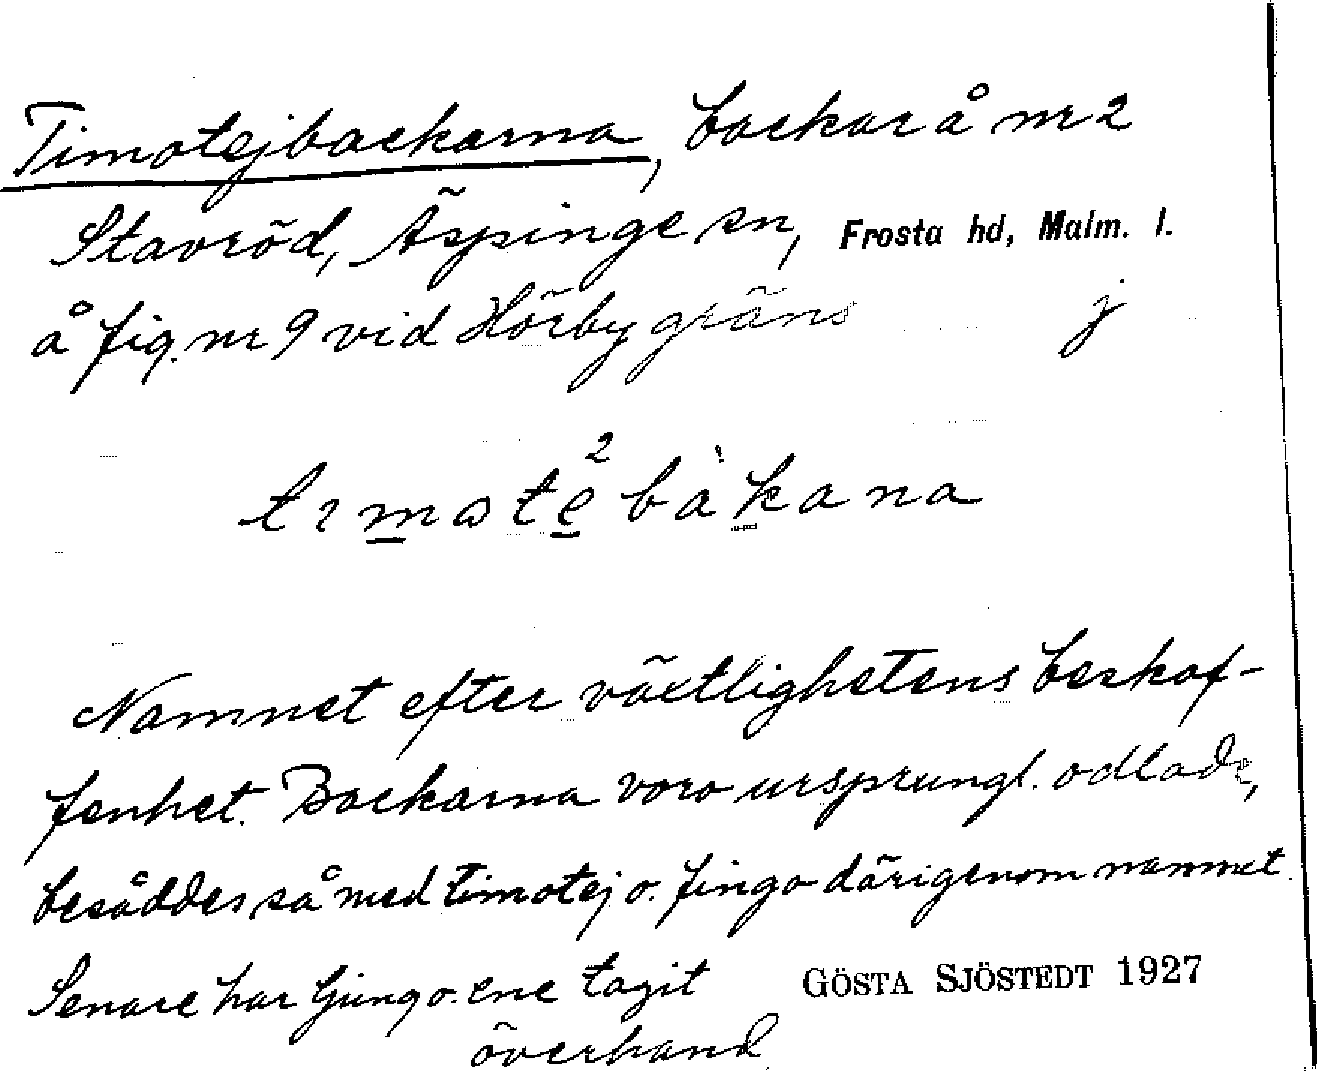 Timotejbackarna, backar å nr 2
Stavröd, Äspinge sn, Frosta hd, Malm. l.
å fig. nr 9 vid Hörby gräns j
Namnet efter växtlighetens beskaf-
fenhet. Backarna voro ursprungl. odlade,
besåddes så med timotej o. fingo därigenom namnet.
Senare har ljung o. ene tagit GÖSTA SJÖSTEDT 1927
överhand